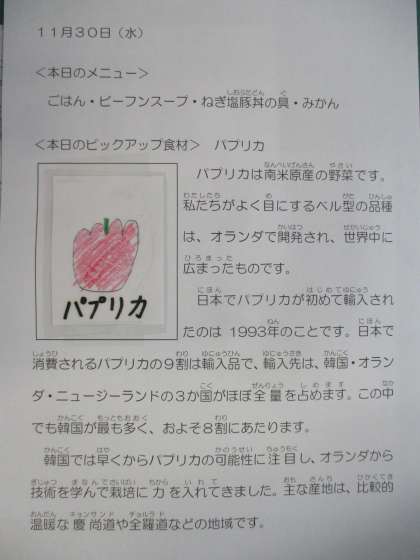 11月30日（水）
＜本日のメニュー＞
ごはん・ビーフンスープ・ねぎ塩豚丼の具・みかん
＜本日のピックアップ食材＞　パプリカ
パプリカは南米原産の野菜です。
私たちがよく目にするベル型の品種
は、オランダで開発され、世界中に
広まったものです。
日本でパプリカが初めて輸入され
たのは1993年のことです。日本で
パプリカ
消費されるパプリカの9割は輸入品で、輸入先は、韓国・オラン
ダ・ニュージーランドの3か国がほぼ全量を占めます。この中
でも韓国が最も多く、およそ8割にあたります。
韓国では早くからパプリカの可能性に注目し、オランダから
技術を学んで栽培に力を入れてきました。主な産地は、比較的
温暖な慶尚道や全羅道などの地域です。